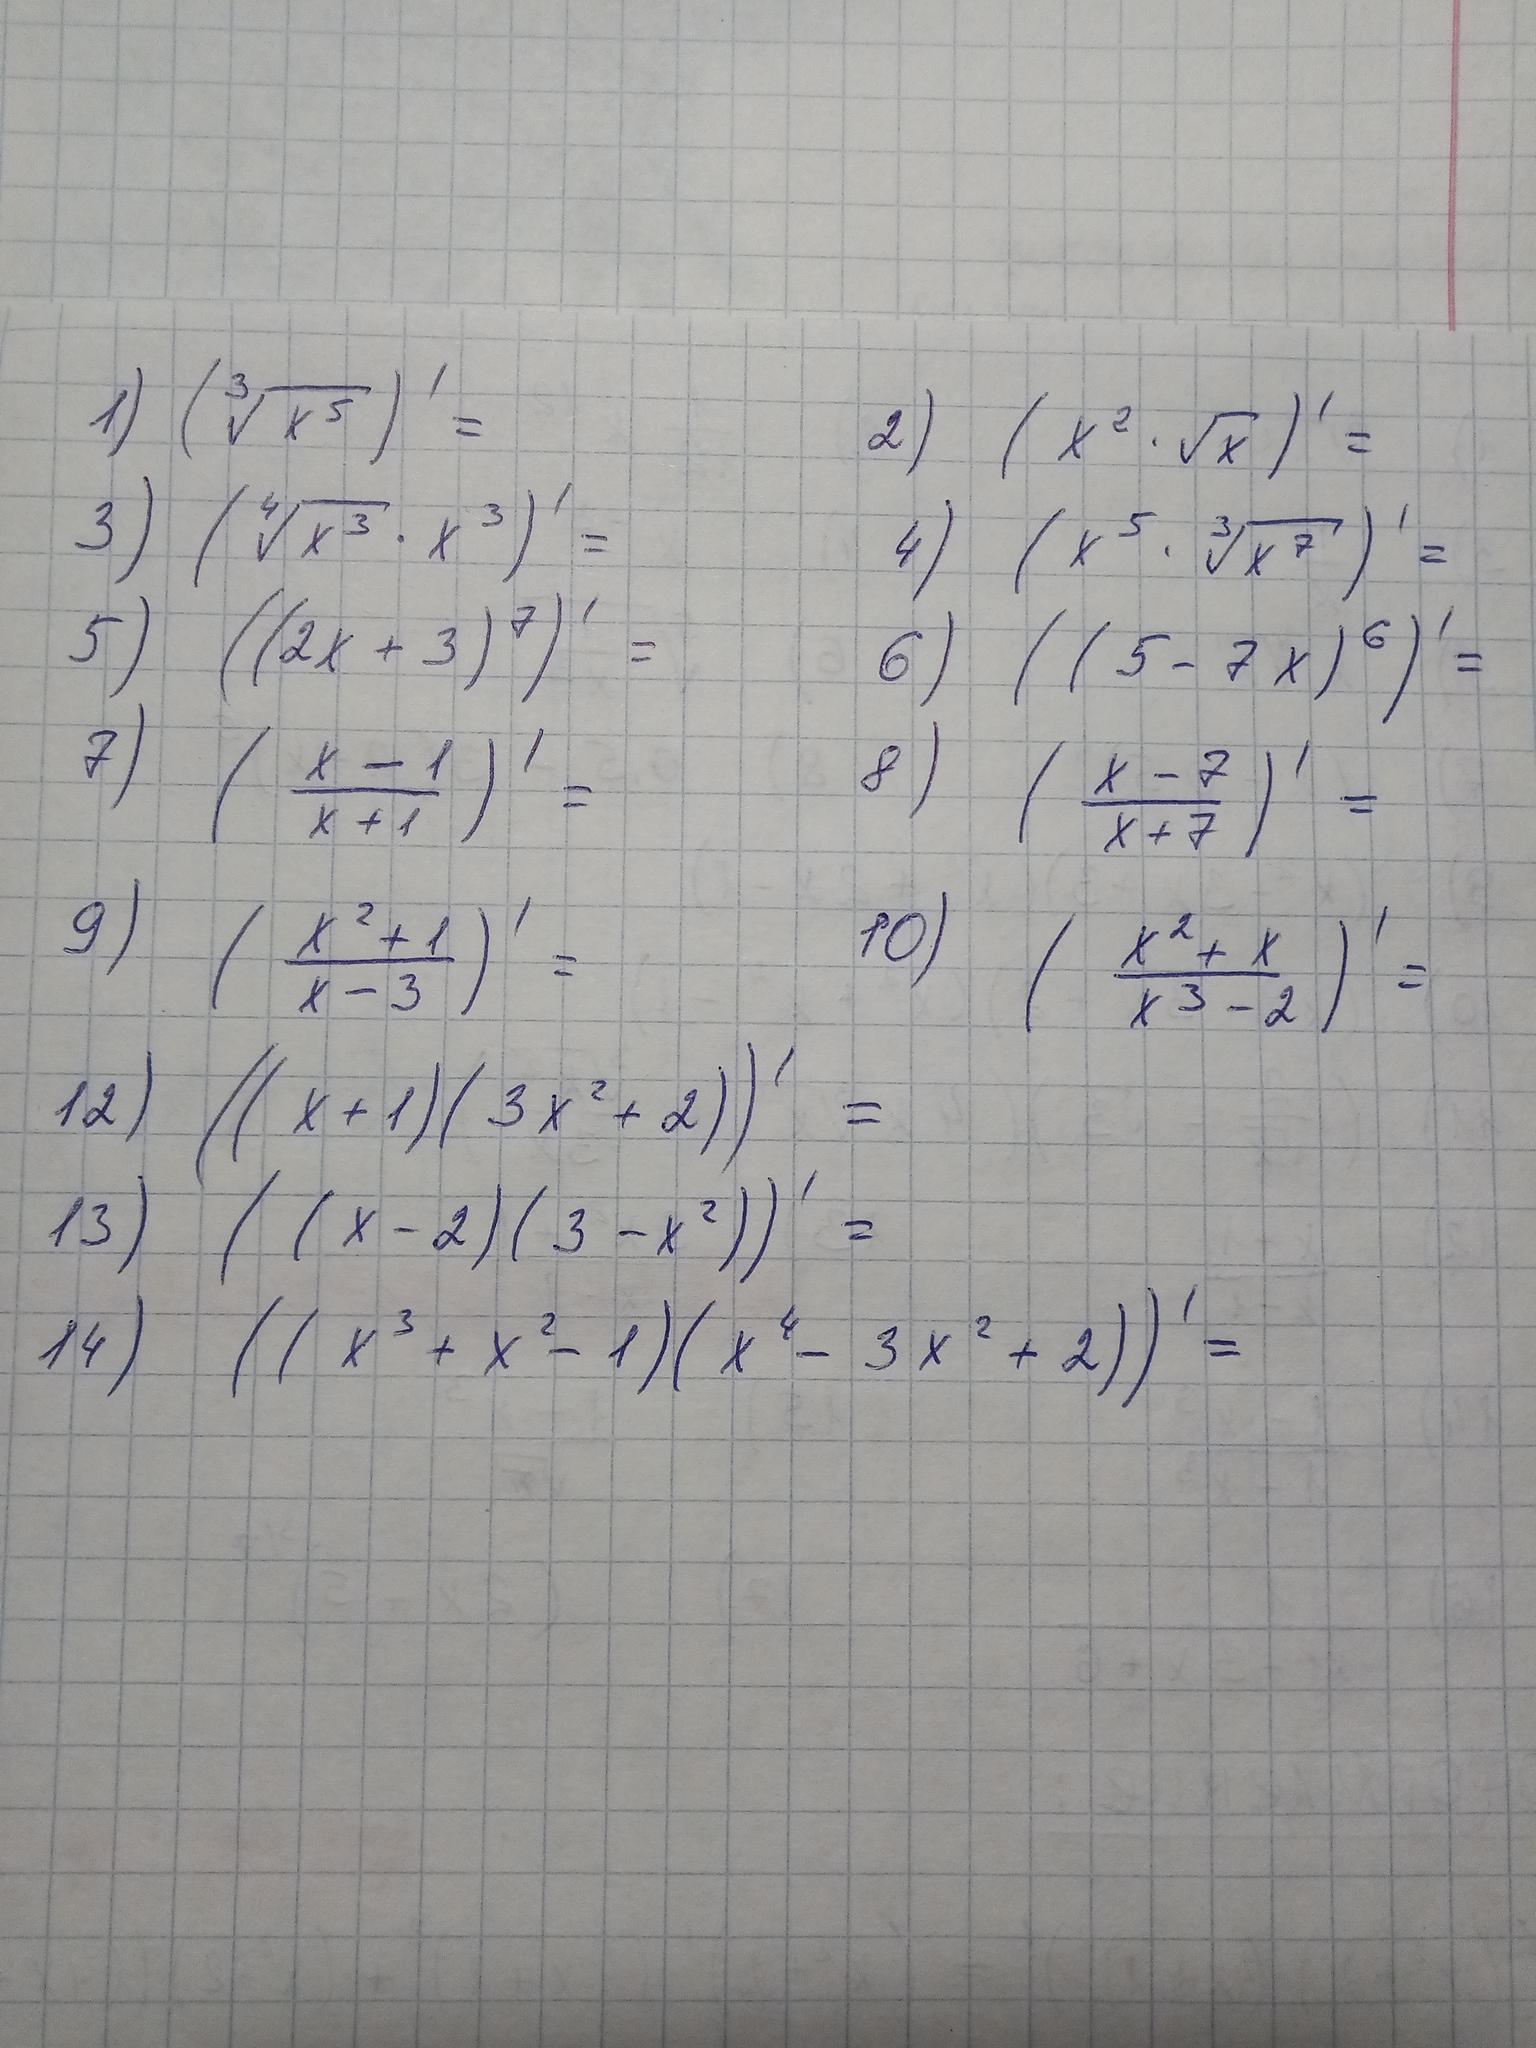 1) (∛x⁵)' = 2) (x² · √x)' =
3) (∜x³ · x³)' = 4) (x⁵ · ∛x⁷)' =
5) ((2x + 3)⁷)' = 6) ((5 - 7x)⁶)' =
7) ((x - 1)/(x + 1))' = 8) ((x - 7)/(x + 7))' =
9) ((x² + 1)/(x - 3))' = 10) ((x² + x)/(x³ - 2))' =
12) ((x + 1)(3x² + 2))' =
13) ((x - 2)(3 - x²))' =
14) ((x³ + x² - 1)(x⁴ - 3x² + 2))' =